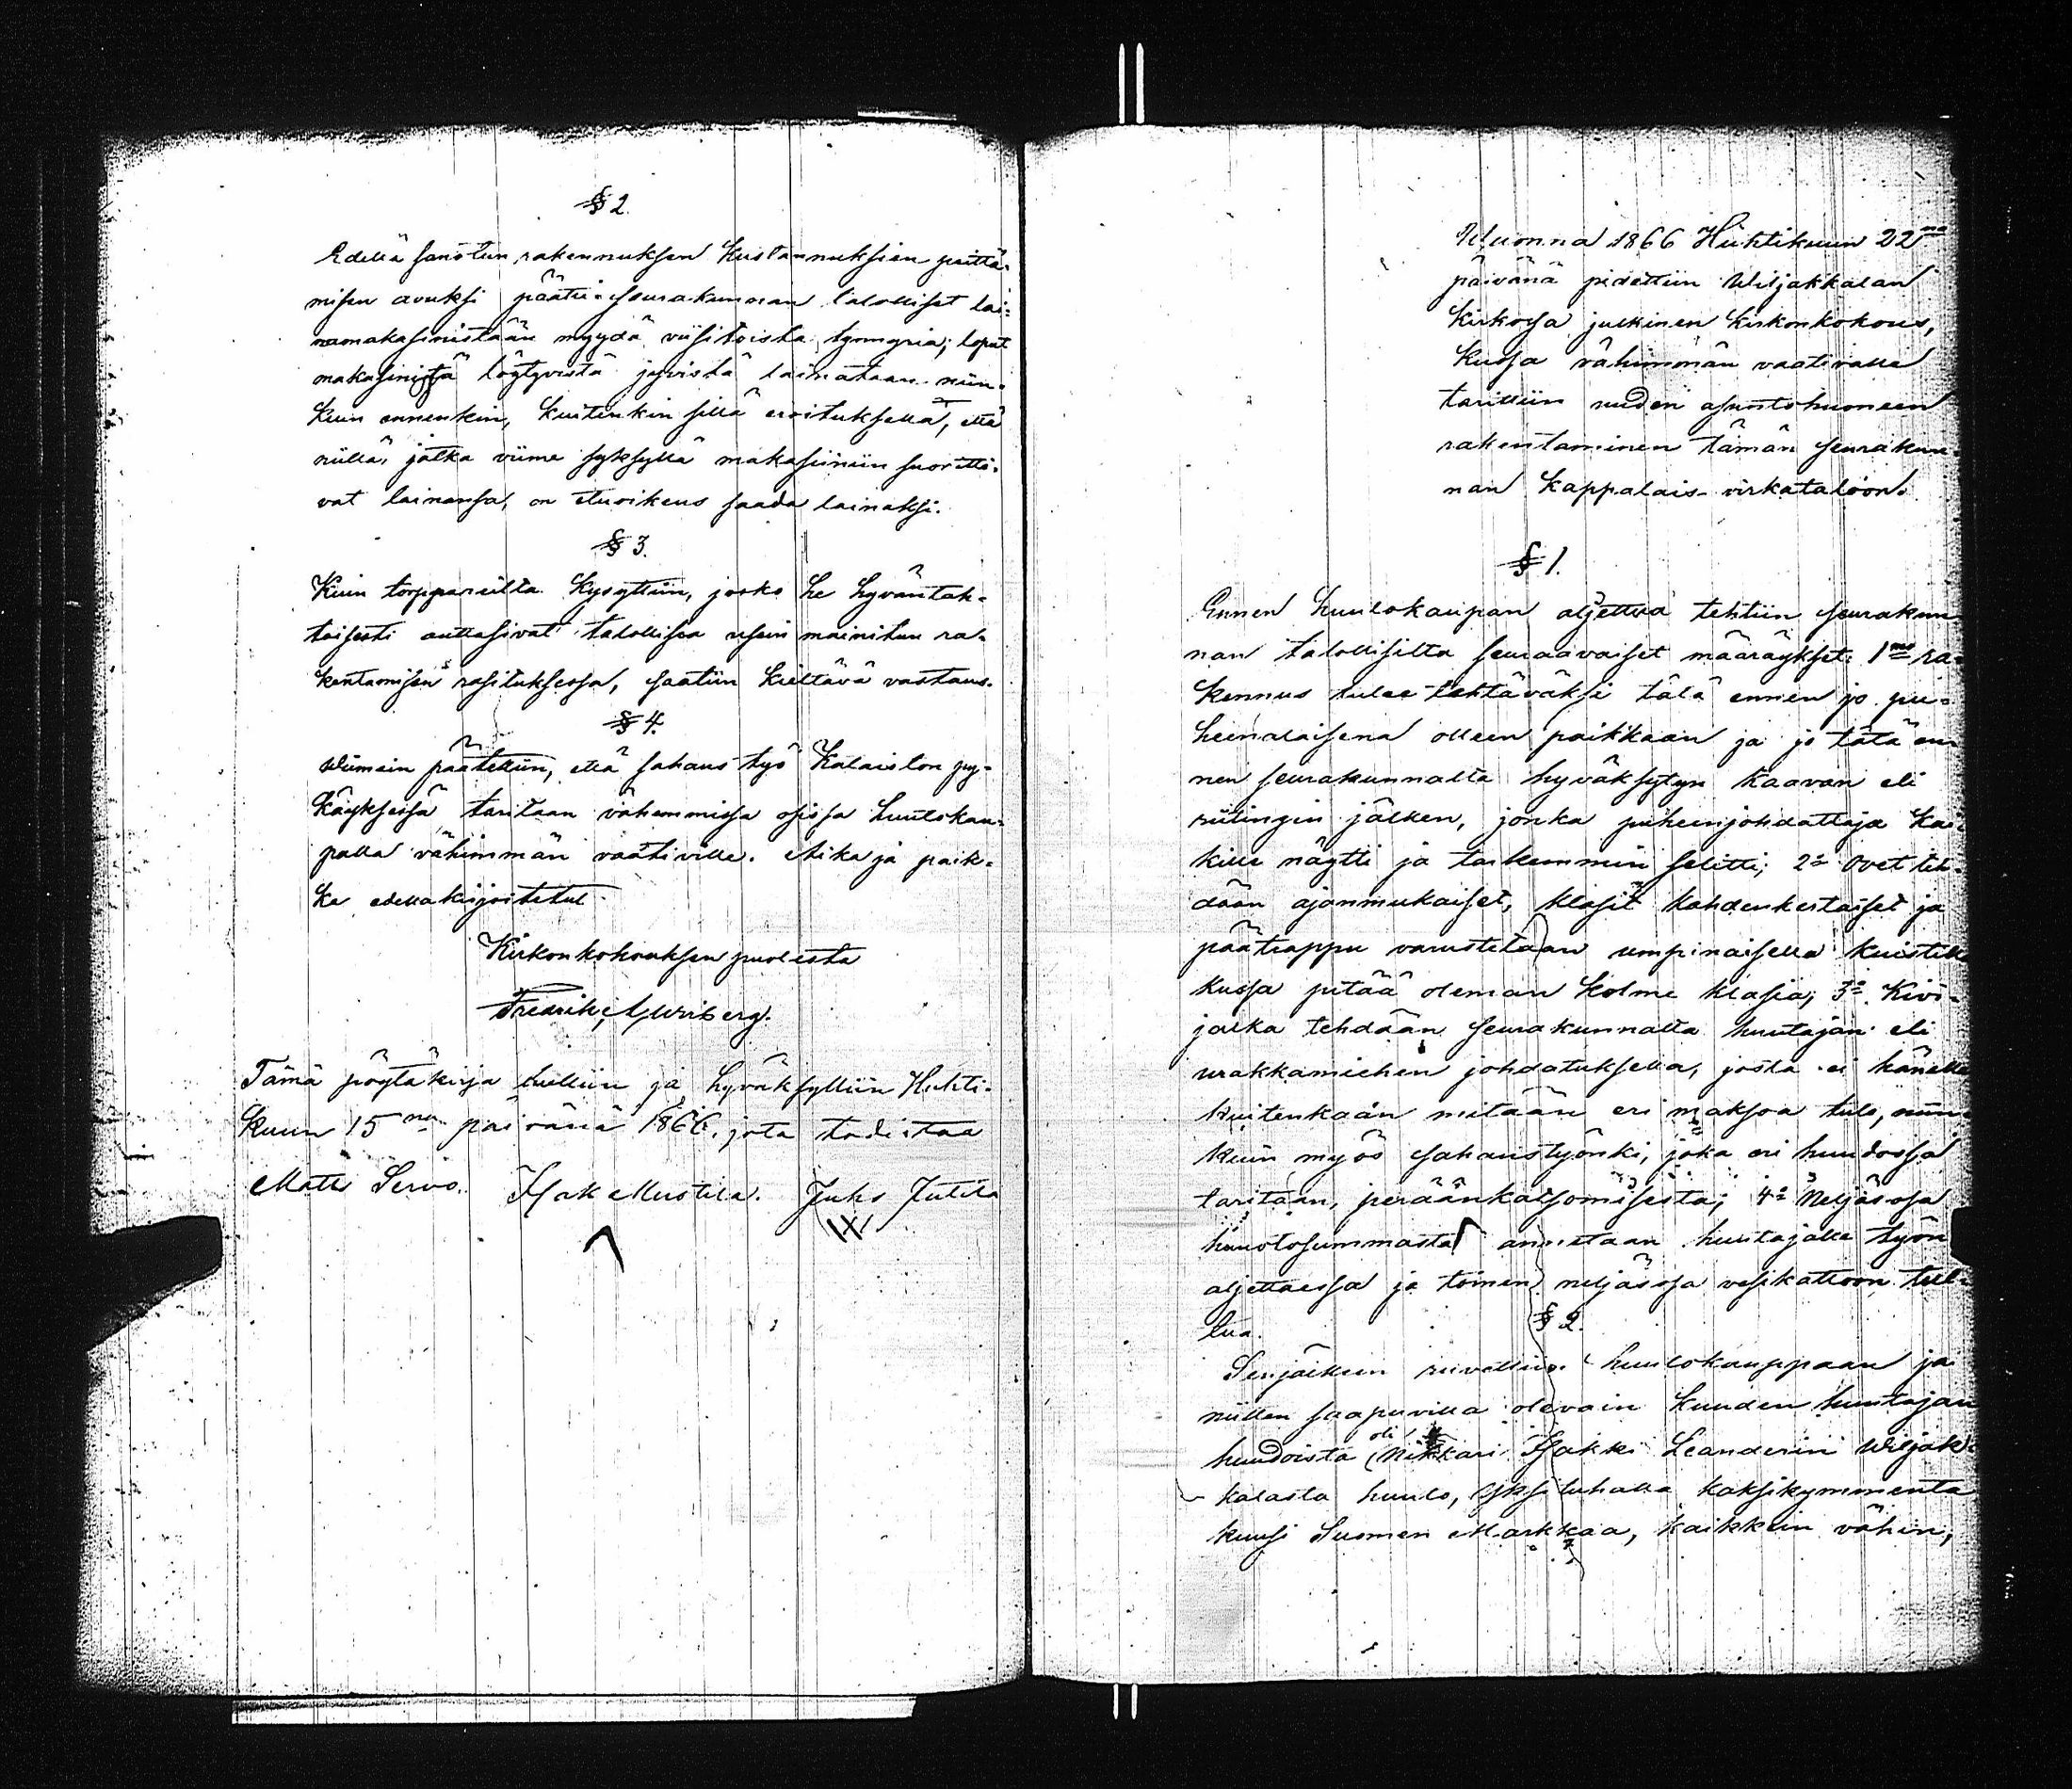 § 2.
Edellä sanotun rakennuksen kustannuksien peittä-
misen avuksi päätti seurakunnan talolliset lai-
namakasinistään myydä viisitoista tynnyriä; loput
makasinista löytyvistä jyvistä lainataan niin-
kuin ennenkin, kuitenkin sillä eroituksella, että
niillä, jotka viime syksyllä makasiiniin suoritti-
vat lainansa, on etuoikeus saada lainaksi.
§ 3.
Kuin torppareilta kysyttiin, josko he hyväntah-
toisesti auttasivat talollisia usein mainitun ra-
kentamisen rasituksessa, saatiin kieltävä vastaus.
§ 4.
Wiimein päätettiin, että sahaus työ Kalaiston py-
käyksessä taritaan vähemmissä osissa huutokau-
palla vähimmän vaativille. Aika ja paik-
ka edelläkirjoitetut.
Kirkonkokouksen puolesta
Fredrik
Tämä pöytäkirja luettiin ja hyväksyttiin Huhti-
kuun 15 na päivänä 1866, jota todistaa
Matti Servo. Isak Mustila. Juho Jutila
Wuonna 1866 Huhtikuun 22na
päivänä pidettiin Wiljakkalan
kirkossa julkinen kirkonkokous,
kussa vähimmän vaativalle
tarittiin uuden asuntohuoneen
rakentaminen tämän seurakun-
nan kappalais-virkataloon.
§ 1.
Ennen huutokaupan aljettua tehtiin seurakun
nan talollisilta seuraavaiset määräykset: 1mo ra-
kennus tulee tehtäväksi tätä ennen jo pu-
heenalaisena olleen paikkaan ja jo tätä en
nen seurakunnalta hyväksytyn kaavan eli
riitingin jälken, jonka puheenjohdattaja kai
kille näytti ja tarkemmin selitti; 2o Ovet teh-
dään ajanmukaiset, klasit kahdenkertaiset ja
päätrappu varustetaan umpinaisella kuistilla
kussa pitää oleman kolme klasia; 3o Kivi-
jalka tehdään seurakunnalta huutajan eli
urakkamiehen johdatuksella, josta ei hänelle
kuitenkaan mitään eri maksoa tule, niin
kuin myös sahaustyönki, joka eri huudossa
taritaan, peräänkatsomisesta; 4o Neljäsosa
huutosummasta annetaan huutajalle työn
aljettaessa ja toinen neljäsosa vesikattoon tul-
tua.
§ 2.
Senjälkeen ruvettiin huutokauppaan ja
niitten saapuvilla olevain kuuden huutajan
huudoista oli Nikkari Isakki Leanderin Wiljak-
kalasta huuto, yksituhatta kaksikymmentä
kuusi Suomen Markkaa, kaikkein vähin,